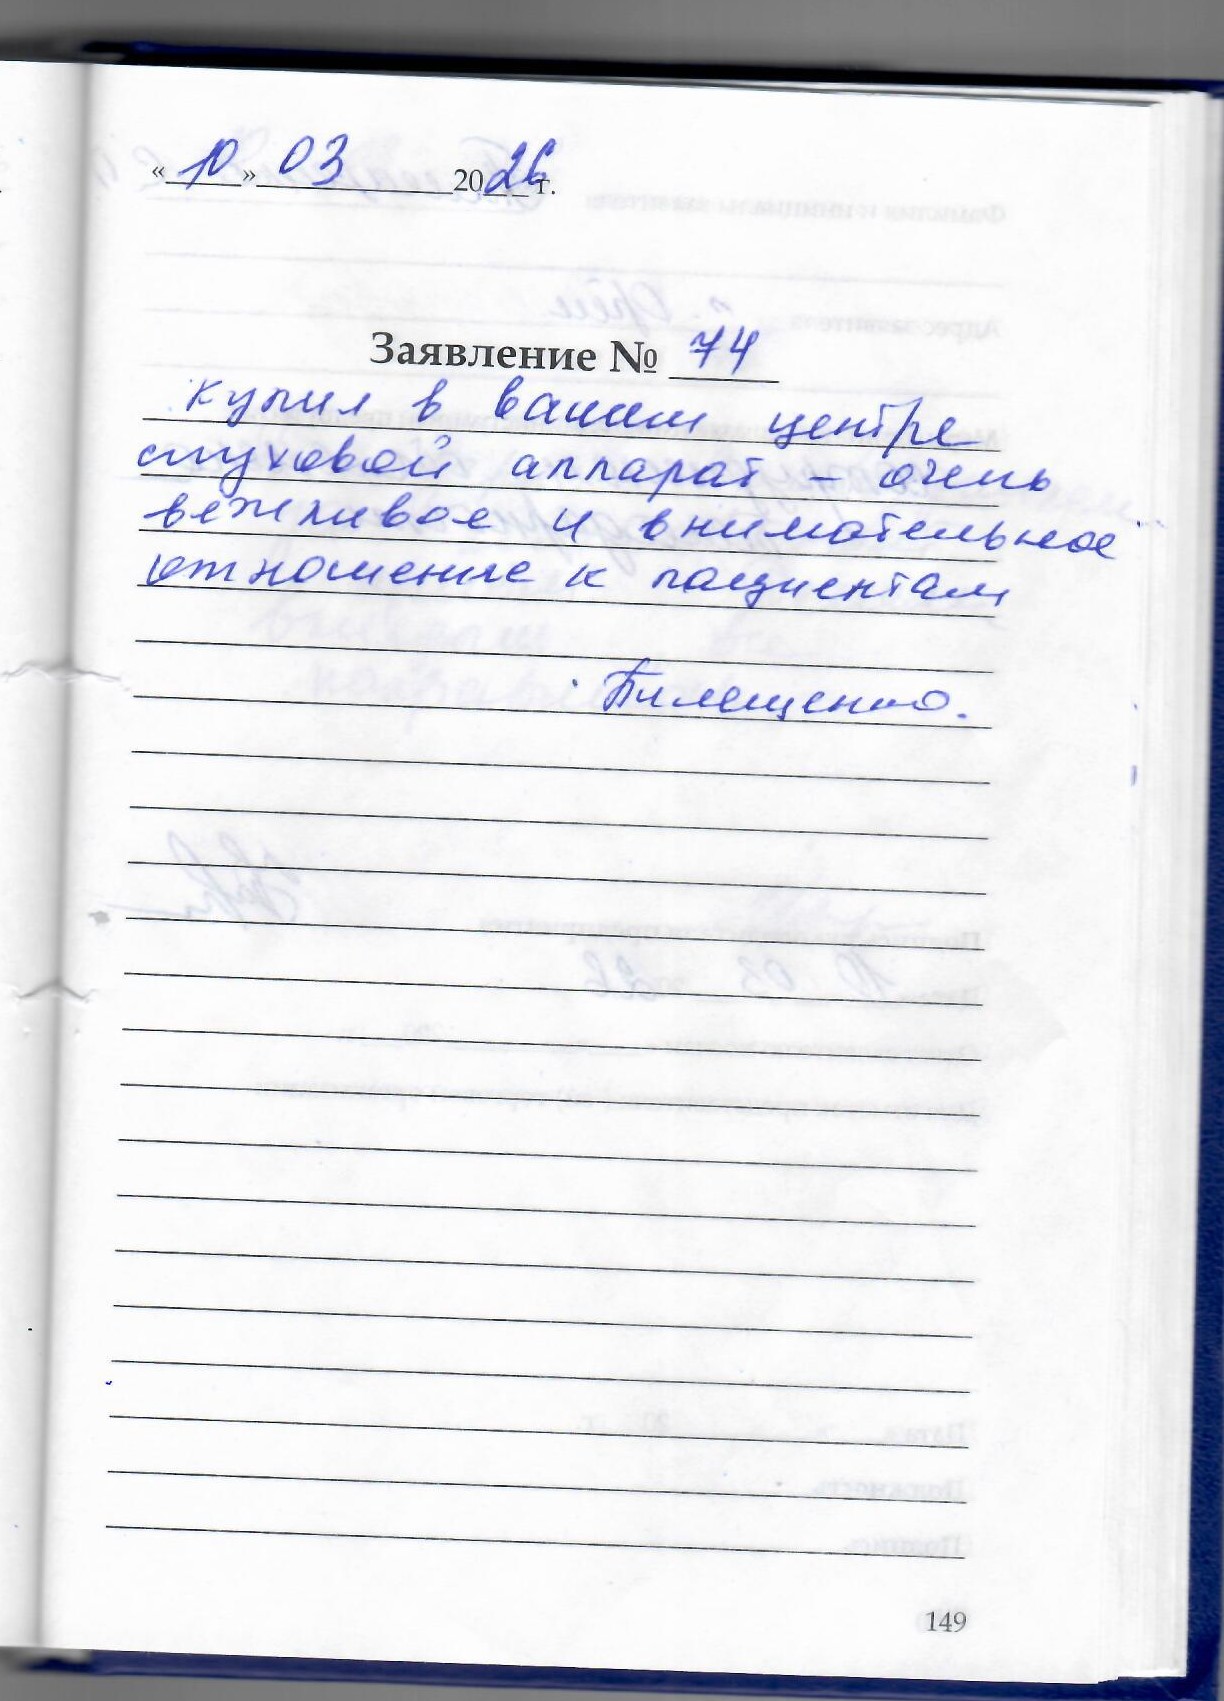 «10» 03 2026 г.
Заявление № 74
Купил в вашем центре
слуховой аппарат – очень
вежливое и внимательное
отношение к пациентам
149